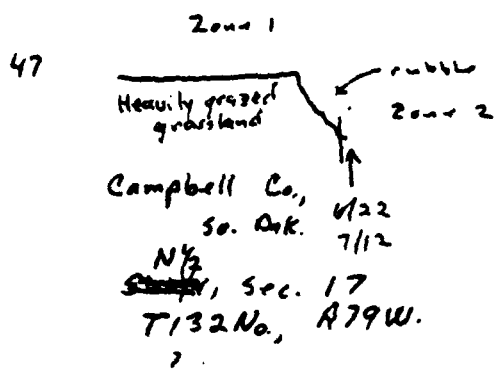 Zone 1
47
rubble
Heavily grazed
grassland
Zone 2
Campbell Co.,
So. Dak.
6/22
7/12
N 1/2
, Sec. 17
T132No., R79W.
?